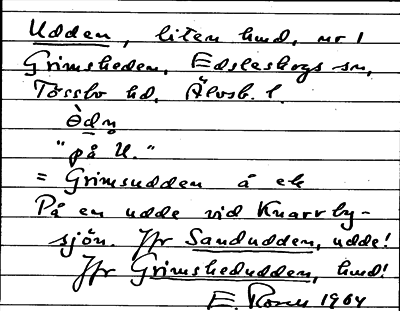 Udden, liten hmd, nr 1
Grimsheden, Edsleskogs sn,
Tössbo hd, Älvsb. l.
ò̀dn̥
"på U."
= Grimsudden å ek
På en udde vid Knarrby-
sjön. Jfr Sandudden, udde!
Jfr Grimshedudden, hmd!
E. Rosen 1964